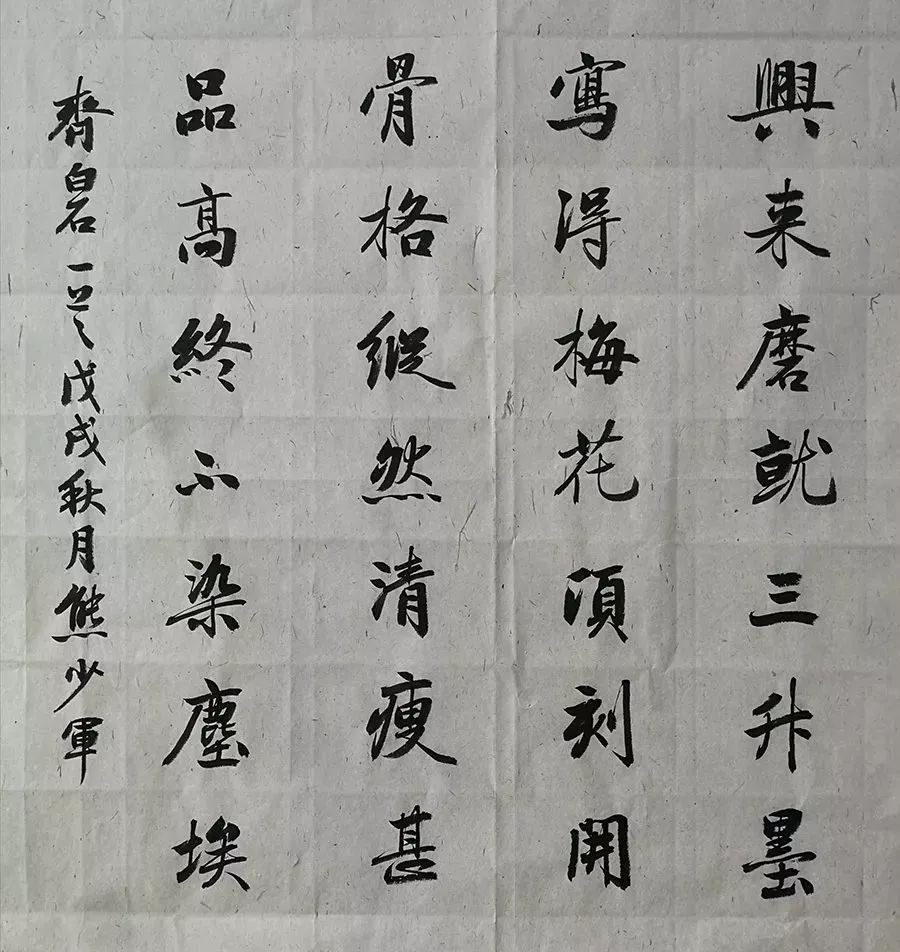 興来磨就三升墨
寫得梅花頃刻開
骨格縱然清瘦甚
品高終不染塵埃
齊白石 戊戌秋月熊少軍